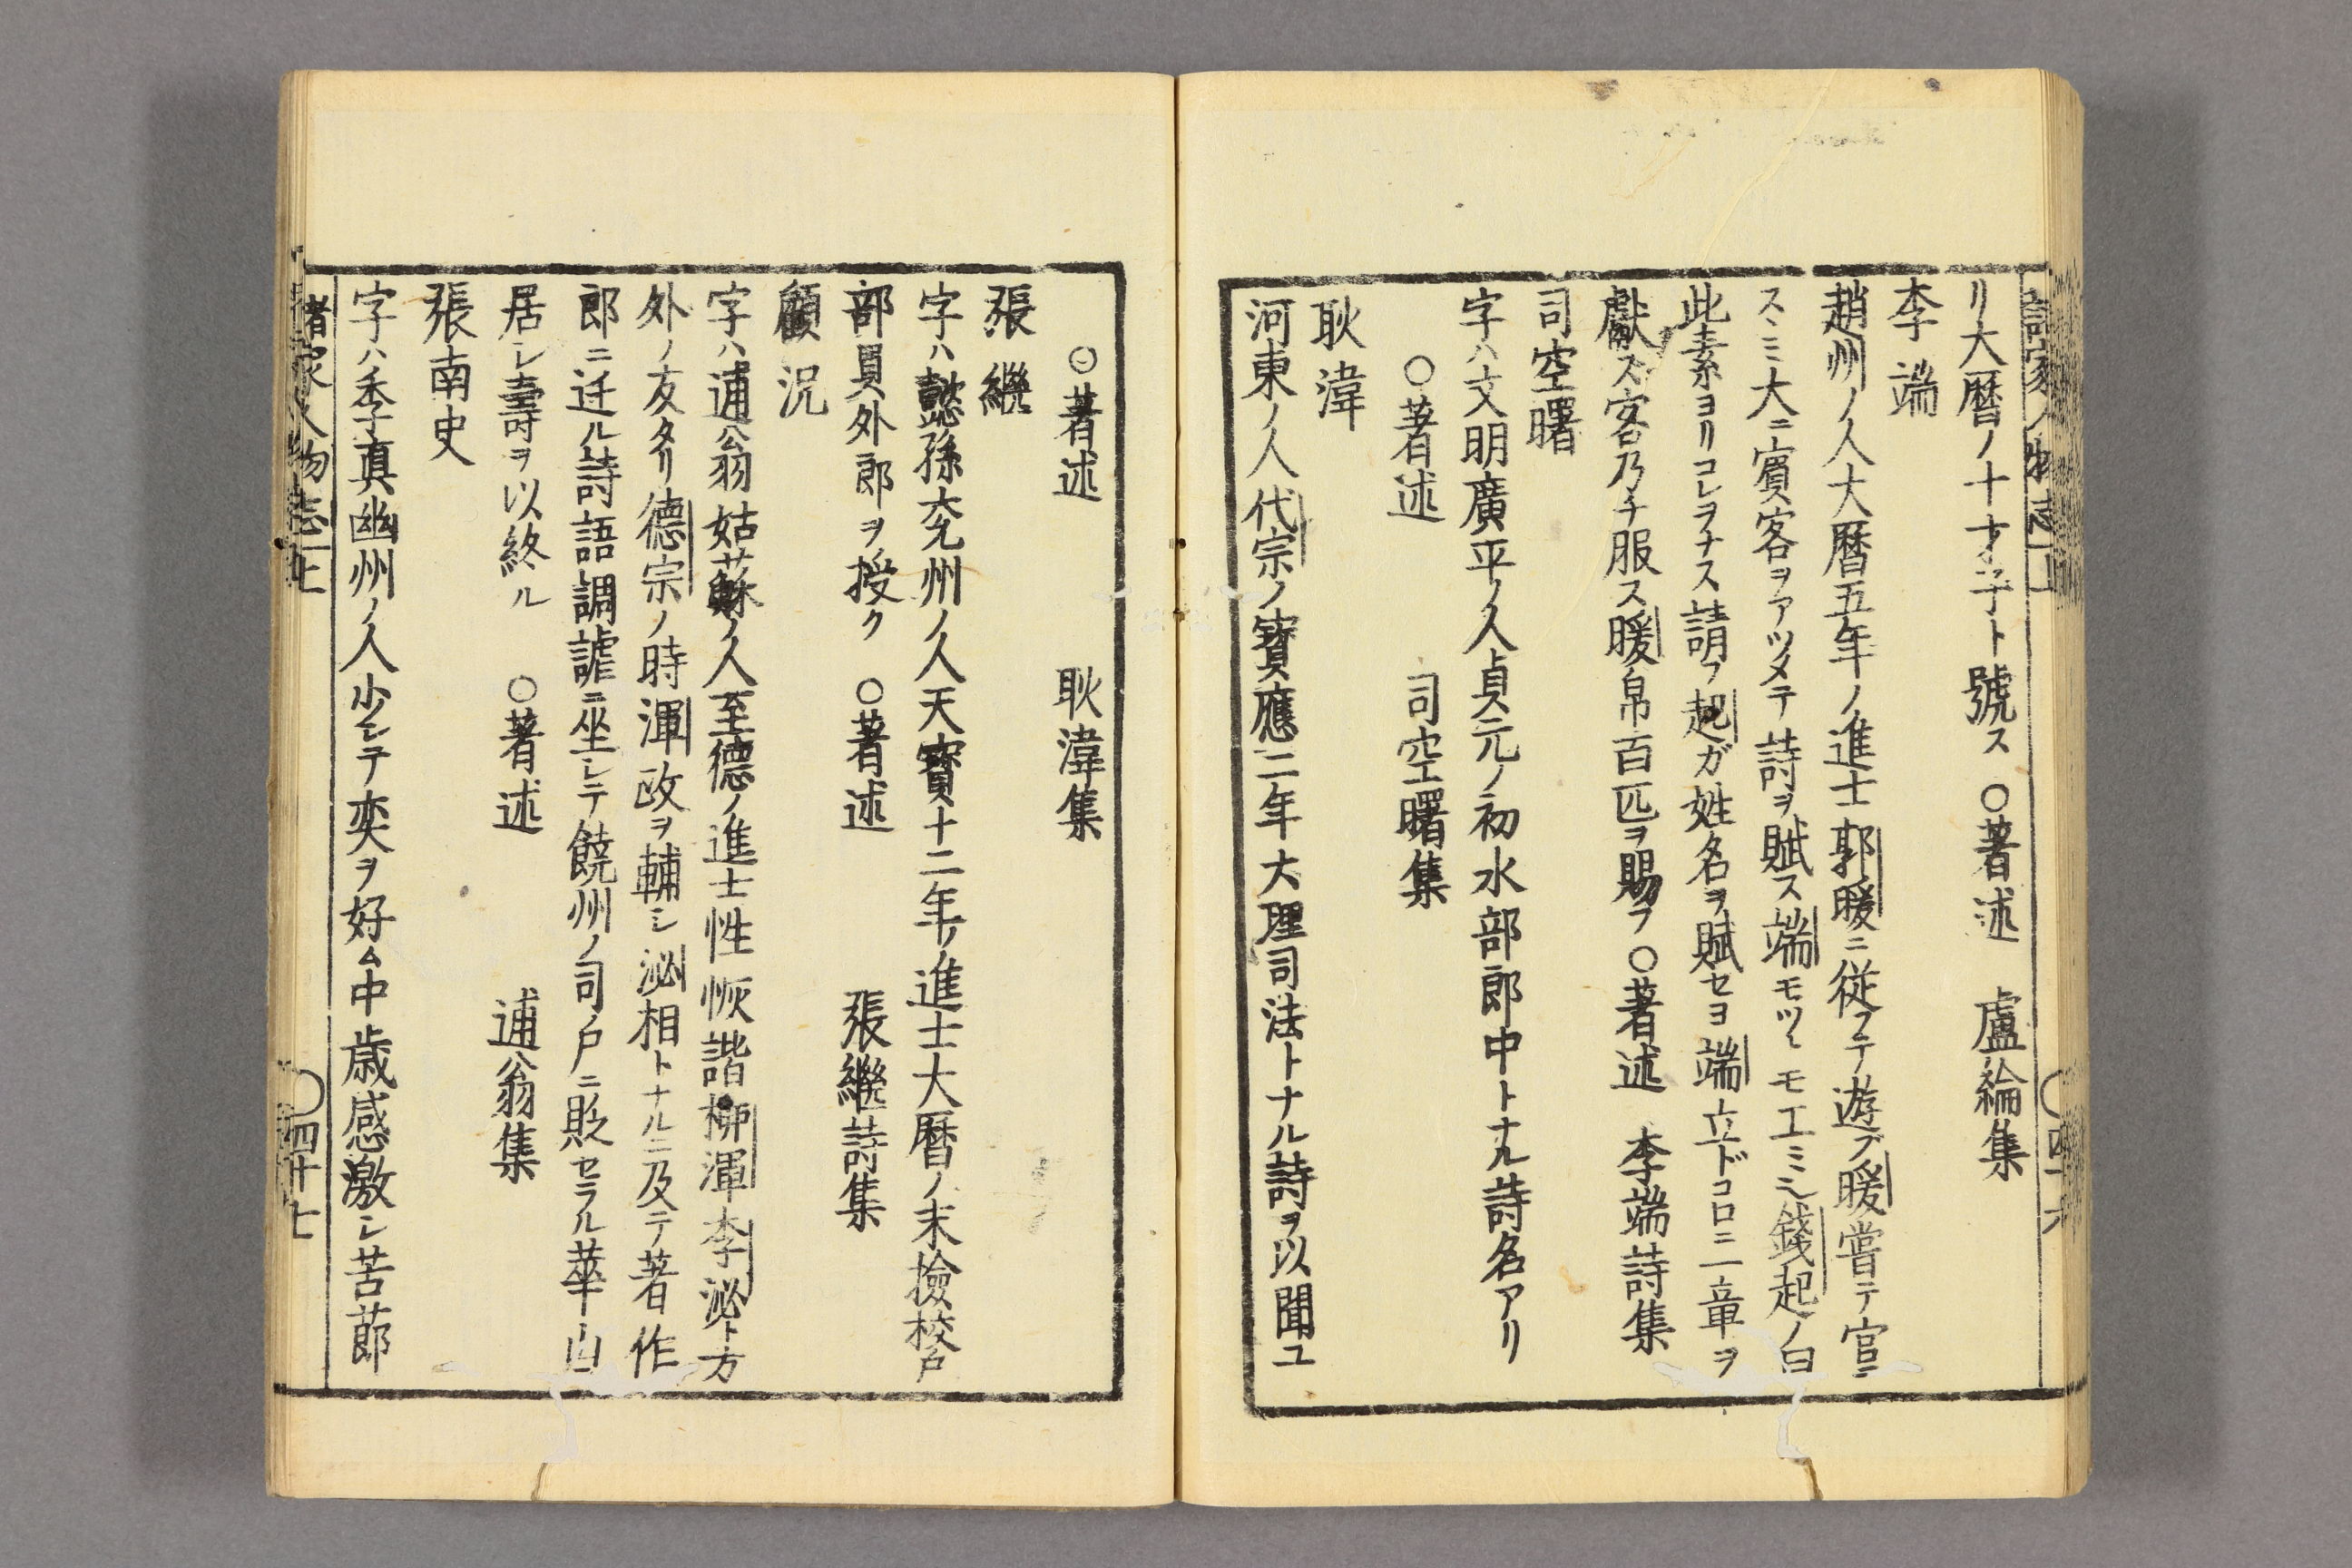 リ大暦ノ十才子ト號ス　○著述　盧綸集
李端
趙州ノ人大暦五年ノ進士郭曖ニ従フテ遊ブ曖嘗テ官ニ
スヽミ大ニ賓客ヲアツメテ詩ヲ賦ス端モツヽモエミシ錢起ノ曰
此素ヨリコレヲナス請フ起ガ姓名ヲ賦セヨ端立ドコロニ一章ヲ
獻ス客乃チ服ス曖帛百匹ヲ賜フ　○著述　李端詩集
司空曙
字ハ文明廣平ノ人貞元ノ初水部郎中トナル詩名アリ
○著述　司空曙集
耿湋
河東ノ人代宗ノ寳應二年大理司法トナル詩ヲ以聞ユ
○著述　耿湋集
張繼
字ハ懿孫兗州ノ人天寳十二年ノ進士大暦ノ末撿校戸
部員外郎ヲ授ク　○著述　張繼詩集
顧況
字ハ逋翁姑蘇ノ人至德ノ進士性恢諧柳渾李泌ト方
外ノ友タリ德宗ノ時渾政ヲ輔シ泌相トナルニ及テ著作
郎ニ迁ル詩語調謔ニ坐シテ饒州ノ司戸ニ貶セラル華山ニ
居シ壽ヲ以終ル　○著述　逋翁集
張南史
字ハ季真幽州ノ人少シテ奕ヲ好ム中歳感激シ苦莭
者家人物志上
四十七